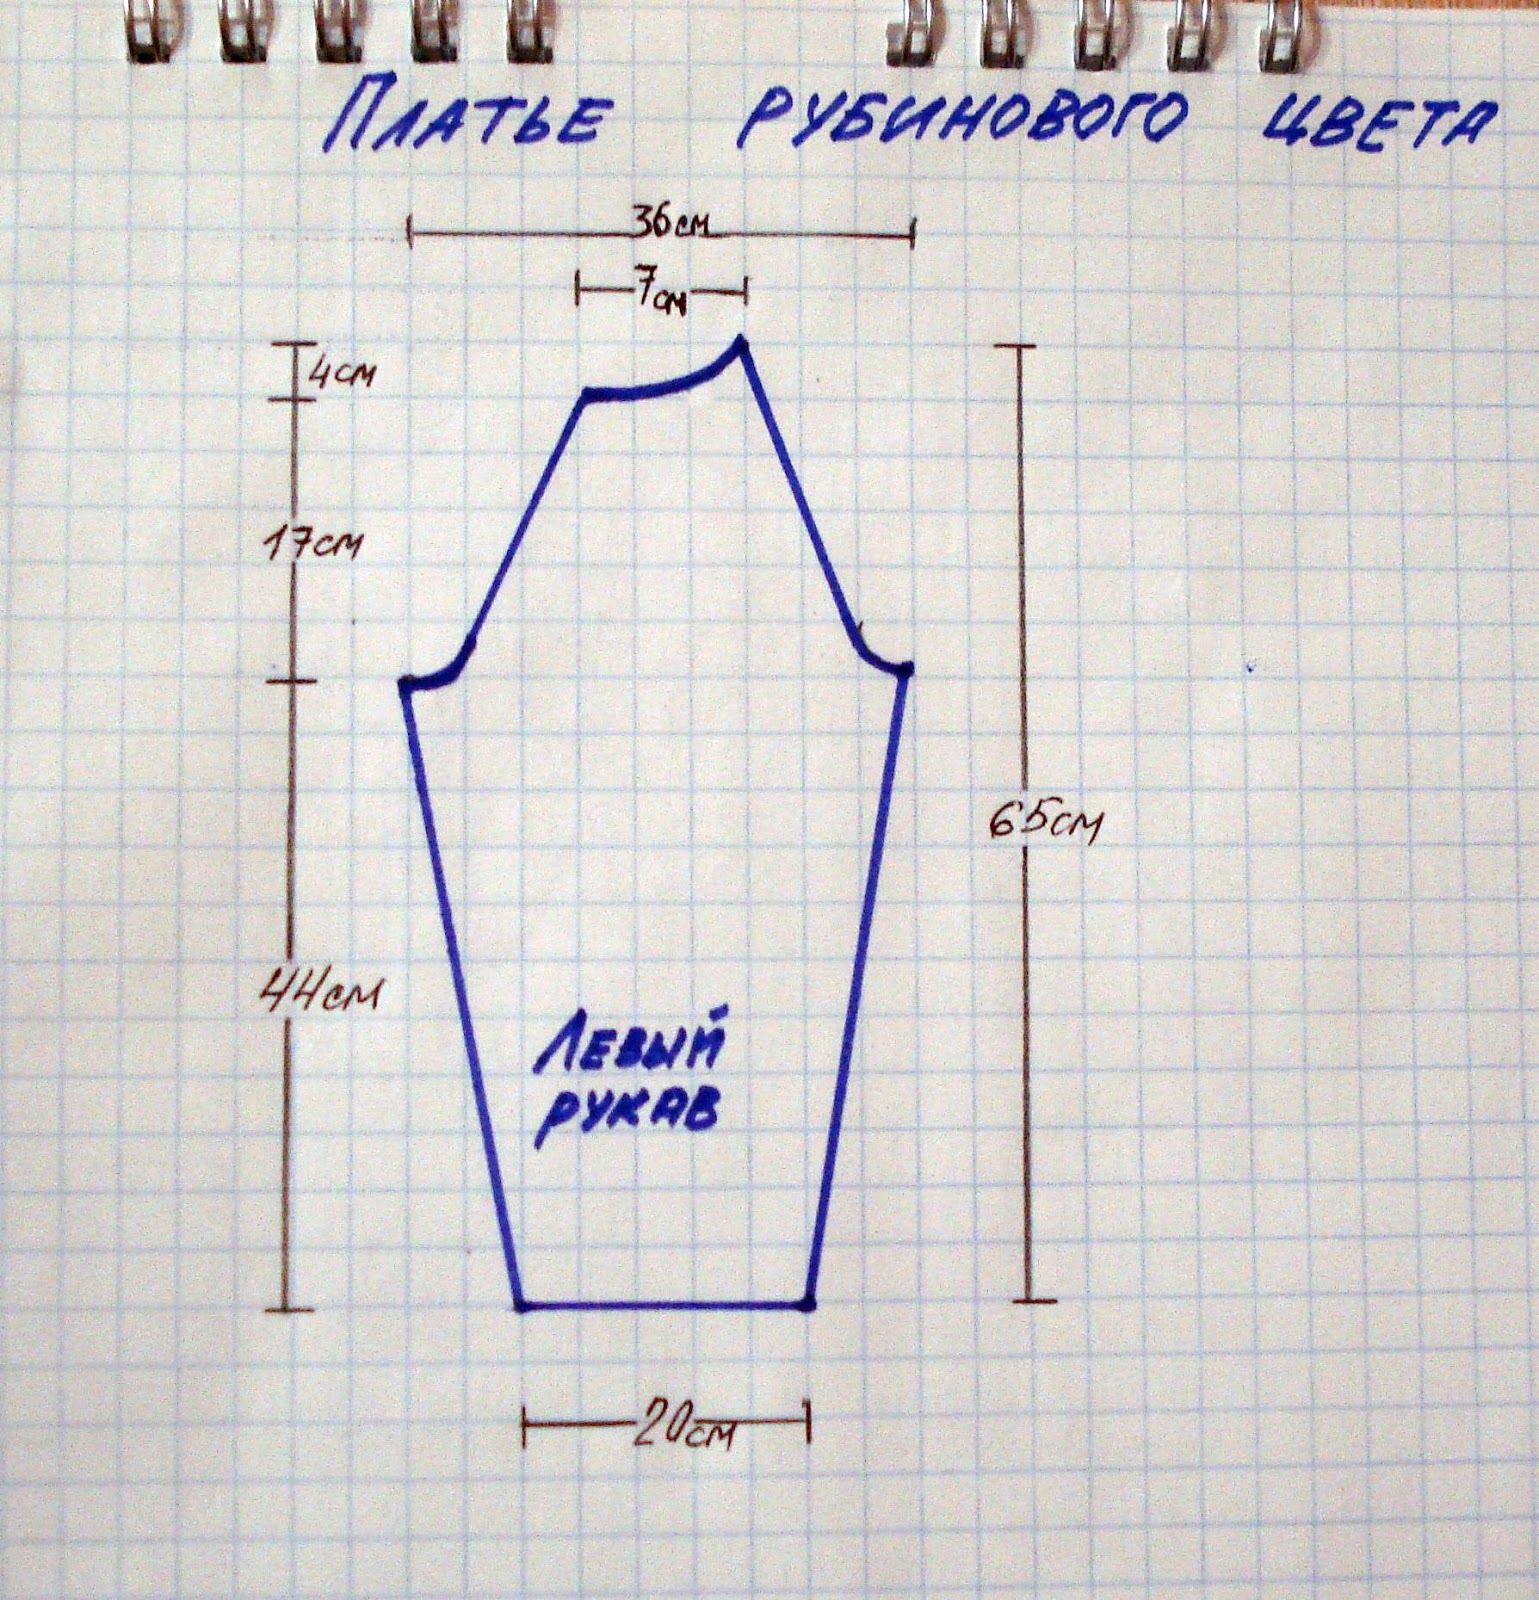 ПЛАТЬЕ РУБИНОВОГО ЦВЕТА
36см
7см
4см
17см
65см
44см
ЛЕВЫЙ
РУКАВ
20см